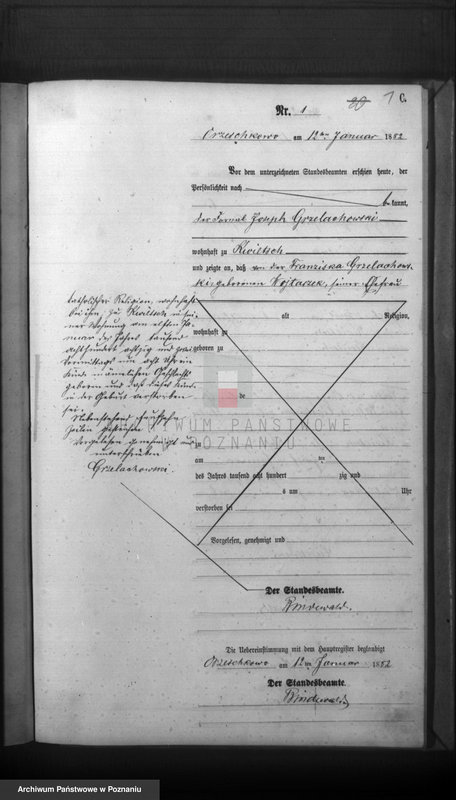 20 1 C.
Nr. 1
Orzeschkowo am 12ten Januar 1882
Vor dem unterzeichneten Standesbeamten erschien heute, der
Persönlichkeit nach
be kannt,
der Fornal Joseph Grzelachowski
wohnhaft zu Kwiltsch
und zeigte an, daß von der Franziska Grzelachows-
ki geborenen Wojtaczek, seiner Ehefrau
katholischer Religion, wohnhaft
bei ihm, zu Kwiltsch in sei-
ner Wohnung am elften Ja-
nuar des Jahres tausend
achthundert achtzig und zwei
Vormittags um acht Uhr ein
Kind männlichen Geschlechts
geboren und daß dieses Kind
in der Geburt verstorben
sei.
Nebenstehend
Zeilen gestrichen.
Vorgelesen genehmigt und
unterschrieben
Grzelachowski
alt Religion,
wohnhaft zu
geboren zu
de
zu
am ten
des Jahres tausend acht hundert zig und
s um Uhr
verstorben sei
Vorgelesen, genehmigt und
Der Standesbeamte.
Rindewald.
Die Uebereinstimmung mit dem Hauptregister beglaubigt
Orzeschkowo am 12ten Januar 1882
Der Standesbeamte.
Rindewald
ARCHIWUM PAŃSTWOWE
W POZNANIU
Archiwum Państwowe w Poznaniu